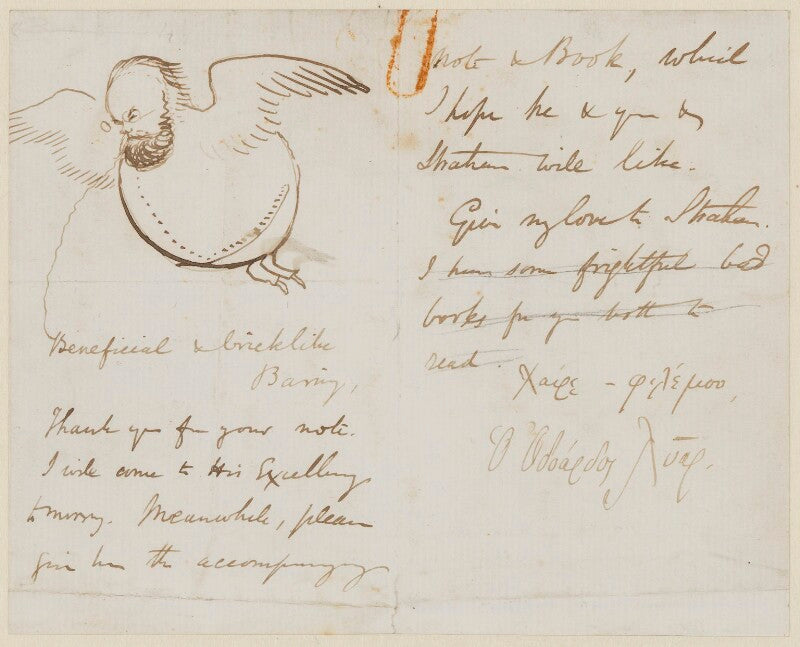 Beneficial & bricklike
Baring,
Thank you for your note.
I will come to His Excellency
tomorrow. Meanwhile, please
give him the accompanying
note & Book, which
I hope he & you &
Strahan will like.
Give my love to Strahan.
I have some frightful bad
books for you both to
read.
Χαίρε – φιλέμου,
Ὁ Ὀδοάρδος Λύαρ.